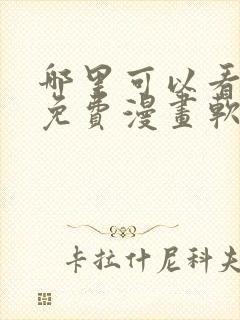 哪里可以看
免費漫畫軟
卡拉什尼科夫